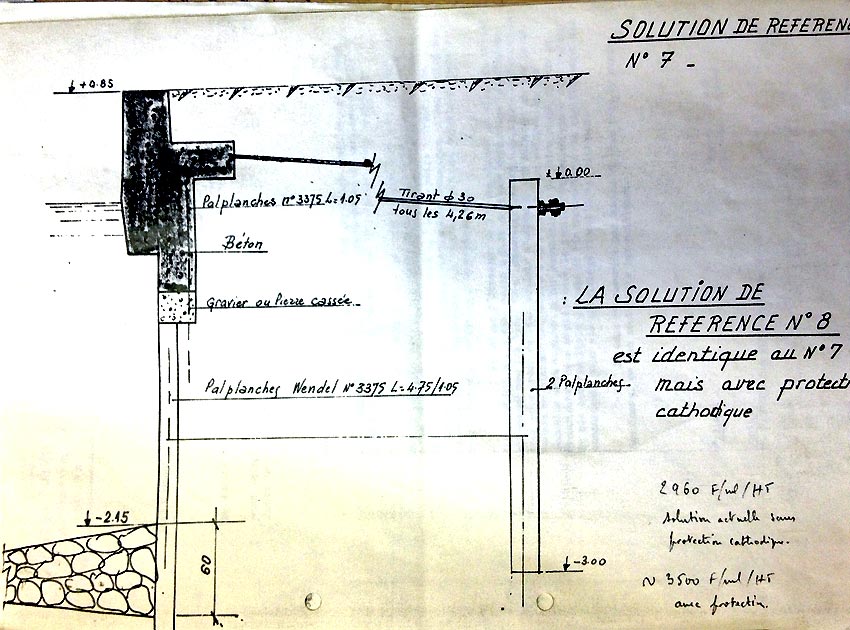 SOLUTION DE REFEREN
N° 7 -
+0.85
±0.00
Tirant ϕ 30
tous les 4,26m
Palplanches n° 3375 L=1.05
Béton
Gravier ou Pierre cassée
: LA SOLUTION DE
REFERENCE N° 8
est identique au N° 7
mais avec protecti
cathodique
Palplanches Wendel N° 3375 L=4.75/1.05
2 Palplanches
2960 F/ml/HT
solution actuelle sans
protection cathodique.
-2.15
60
-3.00
~ 3500 F/ml/HT
avec protection.